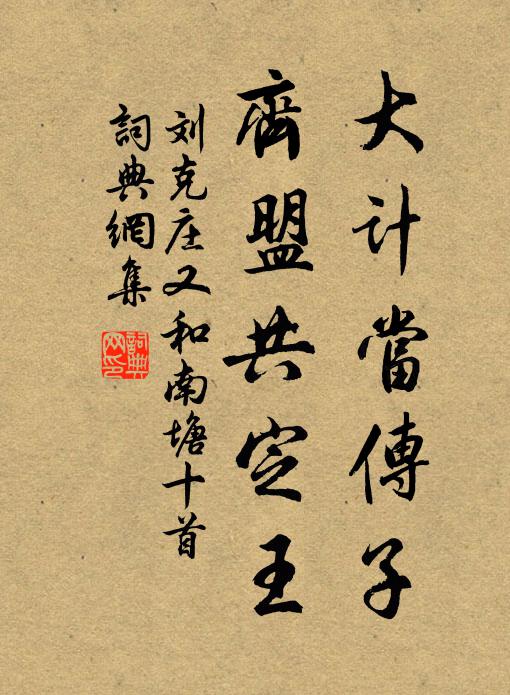 大计當傳子
齊盟共定王
刘克庄又和南塘十首
詞典網集
詞典网印